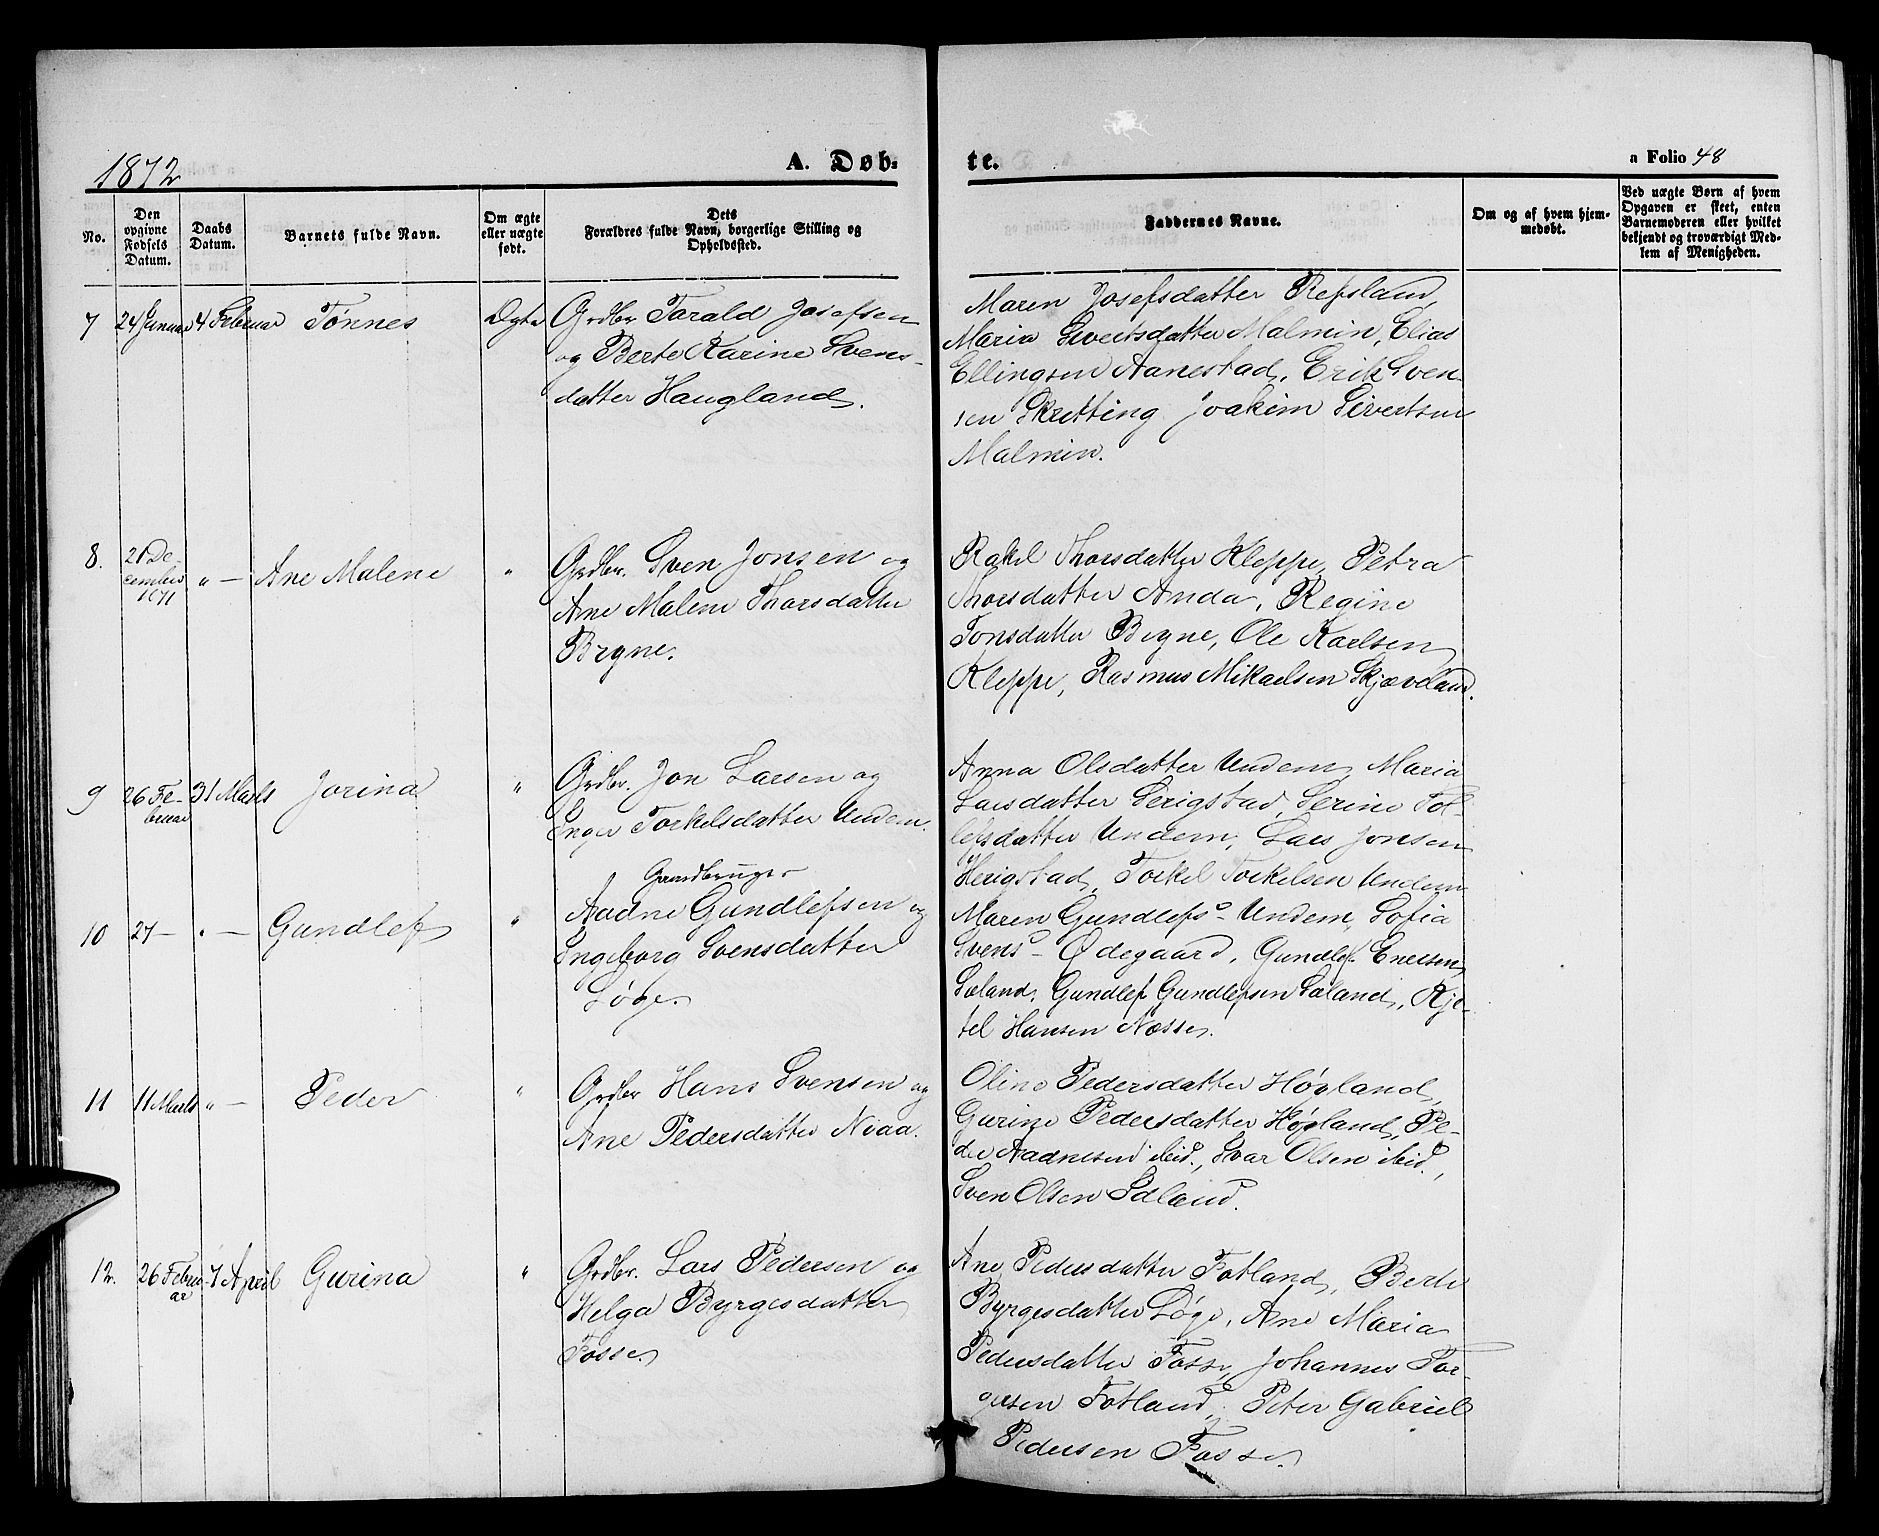 1872
A. Døb-
te.
a Folio 48
No.
Den
opgivne
Fødsels
Datum.
Daabs
Datum.
Barnets fulde Navn.
Om ægte
eller uægte
født.
Dets
Forældres fulde Navn, borgerlige Stilling og
Opholdssted.
Faddernes Navne.
Om og af hvem hjem-
medøbt.
Ved uægte Børn af hvem
Opgaven er skeet, enten
Barnemoderen eller hvilket
bekjendt og troværdigt Med-
lem af Menigheden.
7 24 Januar 4 Februar Tönnes Ægte
Grdbr. Torald Josefsen
og Berte Karine Svens-
datter Haugland.
Maren Josefsdatter Refsland,
Maria Sivertsdatter Malmin, Elias
Ellingsen Aanestad, Erik Sven-
sen Skretting Joakim Sivertsen
Malmin.
8. 21 De-
cember
1871 " — Ane Malene "
Grdbr. Sven Jonsen og
Ane Malene Thorsdatter
Bryne.
Rakel Thorsdatter Kleppe, Petra
Thorsdatter Anda, Regine
Tonsdatter Bryne, Ole Karlsen
Kleppe, Rasmus Mikaelsen Skjæveland.
9 26 Fe-
bruar 31 Marts Jorina "
Grdbr. Jon Larsen og
Inger Torkelsdatter Undem.
Anna Olsdatter Undem, Maria
Larsdatter Serigstad, Serine Tol-
lefsdatter Undem, Lars Jonsen
Herigstad, Torkel Torkelsen Undem
10 27 — " — Gundlef "
Gaardbruger
Aadne Gundlefsen og
Ingeborg Svensdatter
Løge.
Maren Gundlefsd- Undem, Sofia
Svensd- Ødegaard, Gundlef Eneksen
Sæland, Gundlef Gundlefsen Sæland, Kje-
tel Hansen Næsse.
11 11 Marts " — Peder "
Grdbr Hans Svensen og
Ane Pedersdatter Niaa.
Oline Pedersdatter Høyland,
Gurine Pedersdatter Høyland, Pe-
der Aadnesen ibid., Ivar Olsen ibid.,
Sven Olsen Edland.
12. 26 Febru-
ar 7 April Gurina "
Grdbr. Lars Pedersen og
Helga Byrgesdatter
Fosse.
Ane Pedersdatter Fotland, Berte
Byrgesdatter Løge, Ane Maria
Pedersdatter Fosse, Johannes Tor-
gersen Fotland, Peter Gabriel
Pedersen Fosse.